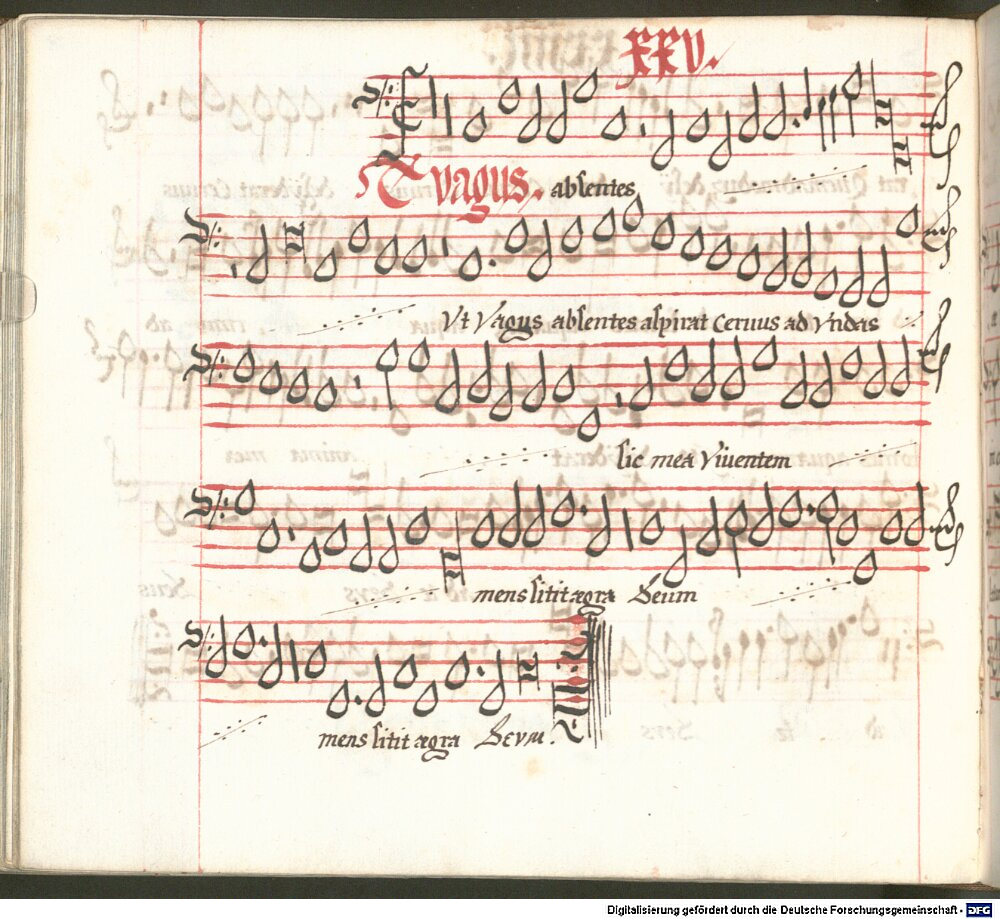 XXV.
Vt vagus. absentes
Vt Vagus absentes aspirat Ceruus ad Vndas
sic mea Viuentem
mens sitit ægra Deum
mens sitit ægra Deum.
Digitalisierung gefördert durch die Deutsche Forschungsgemeinschaft - DFG